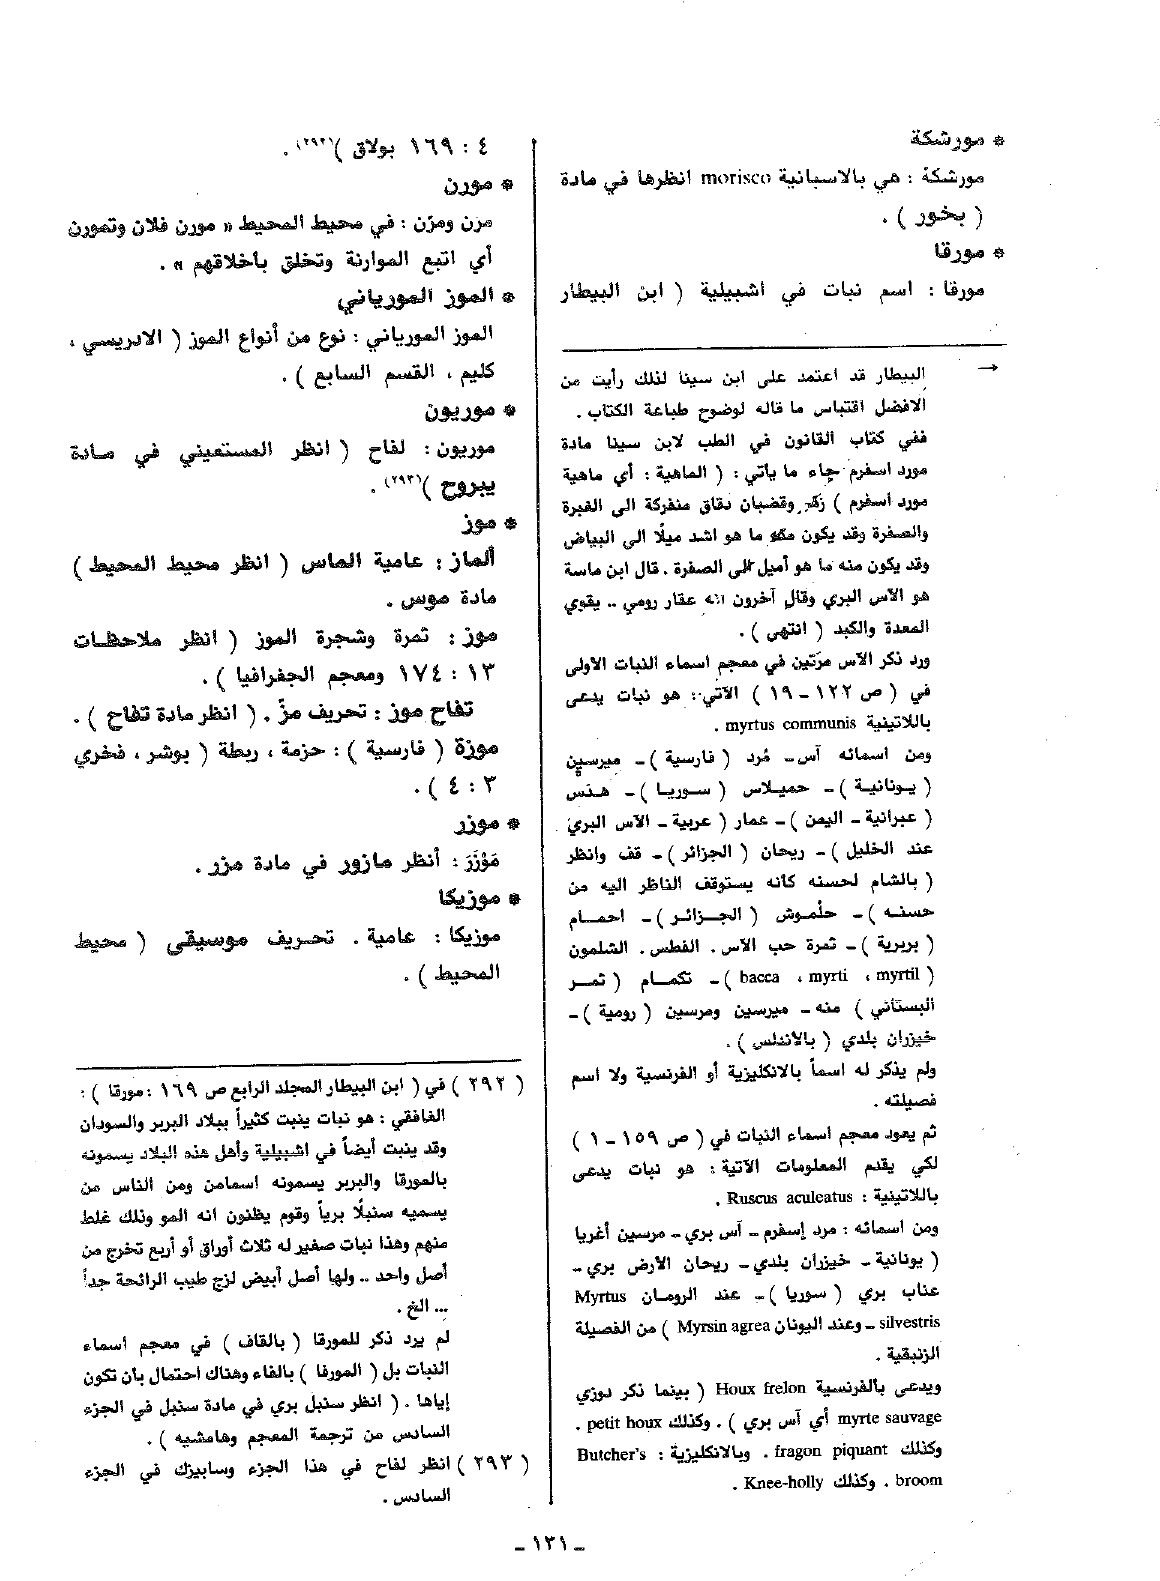 * مورشكة
مورشكة : هي بالاسبانية morisco انظرها في مادة
( بخور ) .
* مورقا
مورقا : اسم نبات في اشبيلية ( ابن البيطار
→ البيطار قد اعتمد على ابن سينا لذلك رأيت من
الافضل اقتباس ما قاله لوضوح طباعة الكتاب .
ففي كتاب القانون في الطب لابن سينا مادة
مورد اسفرم جاء ما يأتي : ( الماهية : أي ماهية
مورد اسفرم ) زكر وقضبان دقاق منفركة الى الغبرة
والصفرة وقد يكون منه ما هو اشد ميلًا الى البياض
وقد يكون منه ما هو أميل الى الصفرة . قال ابن ماسة
هو الآس البري وقال آخرون انه عقار رومي .. يقوي
المعدة والكبد ( انتهى ) .
ورد ذكر الآس مرّتين في معجم اسماء النبات الاولى
في ( ص ١٢٢ - ١٩ ) الآتي : هو نبات يدعى
باللاتينية myrtus communis .
ومن اسمائه آس - مُرد ( فارسية ) - ميرسين
( يونانية ) - حميلاس ( سوريا ) - هدس
( عبرانية - اليمن ) - عمار ( عربية - الآس البري
عند الخليل ) - ريحان ( الجزائر ) - قف وانظر
( بالشام لحسنه كانه يستوقف الناظر اليه من
حسنه ) - حلْموش ( الجزائر ) - احمام
( بربرية ) - ثمرة حب الآس . الفطس . الشلمون
( bacca ، myrti ، myrtil ) - تكمام ( ثمر
البستاني ) منه - ميرسين ومرسين ( رومية ) -
خيزران بلدي ( بالاندلس ) .
ولم يذكر له اسماً بالانكليزية أو الفرنسية ولا اسم
فصيلته .
ثم يعود معجم اسماء النبات في ( ص ١٥٩ - ١ )
لكي يقدم المعلومات الآتية : هو نبات يدعى
باللاتينية : Ruscus aculeatus .
ومن اسمائه : مرد إسفرم - آس بري - مرسين أغريا
( يونانية - خيزران بلدي - ريحان الأرض بري -
عناب بري ( سوريا ) - عند الرومان Myrtus
silvestris - وعند اليونان Myrsin agrea ) من الفصيلة
الزنبقية .
ويدعى بالفرنسية Houx frelon ( بينما ذكر دوزي
myrte sauvage أي آس بري ) . وكذلك petit houx .
وكذلك fragon piquant . وبالانكليزية : Butcher's
broom . وكذلك Knee-holly .
٤ : ١٦٩ بولاق )(٢٩٢) .
* مورن
مرن ومرّن : في محيط المحيط « مورن فلان وتمورن
أي اتبع الموارنة وتخلق بأخلاقهم » .
* الموز المورياني
الموز المورياني : نوع من أنواع الموز ( الادريسي ،
كليم ، القسم السابع ) .
* موريون
موريون : لفاح ( انظر المستعيني في مادة
يبروح )(٢٩٣) .
* موز
ألماز : عامية الماس ( انظر محيط المحيط )
مادة موس .
موز : ثمرة وشجرة الموز ( انظر ملاحظات
١٣ : ١٧٤ ومعجم الجغرافيا ) .
تفاح موز : تحريف مزّ . ( انظر مادة تفاح ) .
موزة ( فارسية ) : حزمة ، ربطة ( بوشر ، فخري
٣ : ٤ ) .
* موزر
مَوْزَرَ : أنظر مازور في مادة مزر .
* موزيكا
موزيكا : عامية . تحريف موسيقى ( محيط
المحيط ) .
( ٢٩٢ ) في ( ابن البيطار المجلد الرابع ص ١٦٩ : مورقا ) :
الغافقي : هو نبات ينبت كثيراً ببلاد البربر والسودان
وقد ينبت أيضاً في اشبيلية وأهل هذه البلاد يسمونه
بالمورقا والبربر يسمونه اسمامن ومن الناس من
يسميه سنبلًا برياً وقوم يظنون انه المو وذلك غلط
منهم وهذا نبات صغير له ثلاث أوراق أو أربع تخرج من
أصل واحد .. ولها أصل أبيض لزج طيب الرائحة جداً
... الخ .
لم يرد ذكر للمورقا ( بالقاف ) في معجم أسماء
النبات بل ( المورفا ) بالفاء وهناك احتمال بأن تكون
إياها . ( انظر سنبل بري في مادة سنبل في الجزء
السادس من ترجمة المعجم وهامشيه ) .
( ٢٩٣ ) انظر لفاح في هذا الجزء وسابيزك في الجزء
السادس .
- ١٣١ -